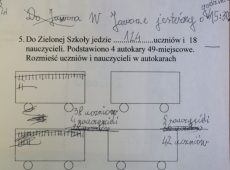 Do Jawora W Jaworze jesteśmy o 15:30
5. Do Zielonej Szkoły jedzie ....164....uczniów i 18
nauczycieli. Podstawiono 4 autokary 49-miejscowe.
Rozmieść uczniów i nauczycieli w autokarach
38 uczniów
5 nauczycieli
42 uczniów